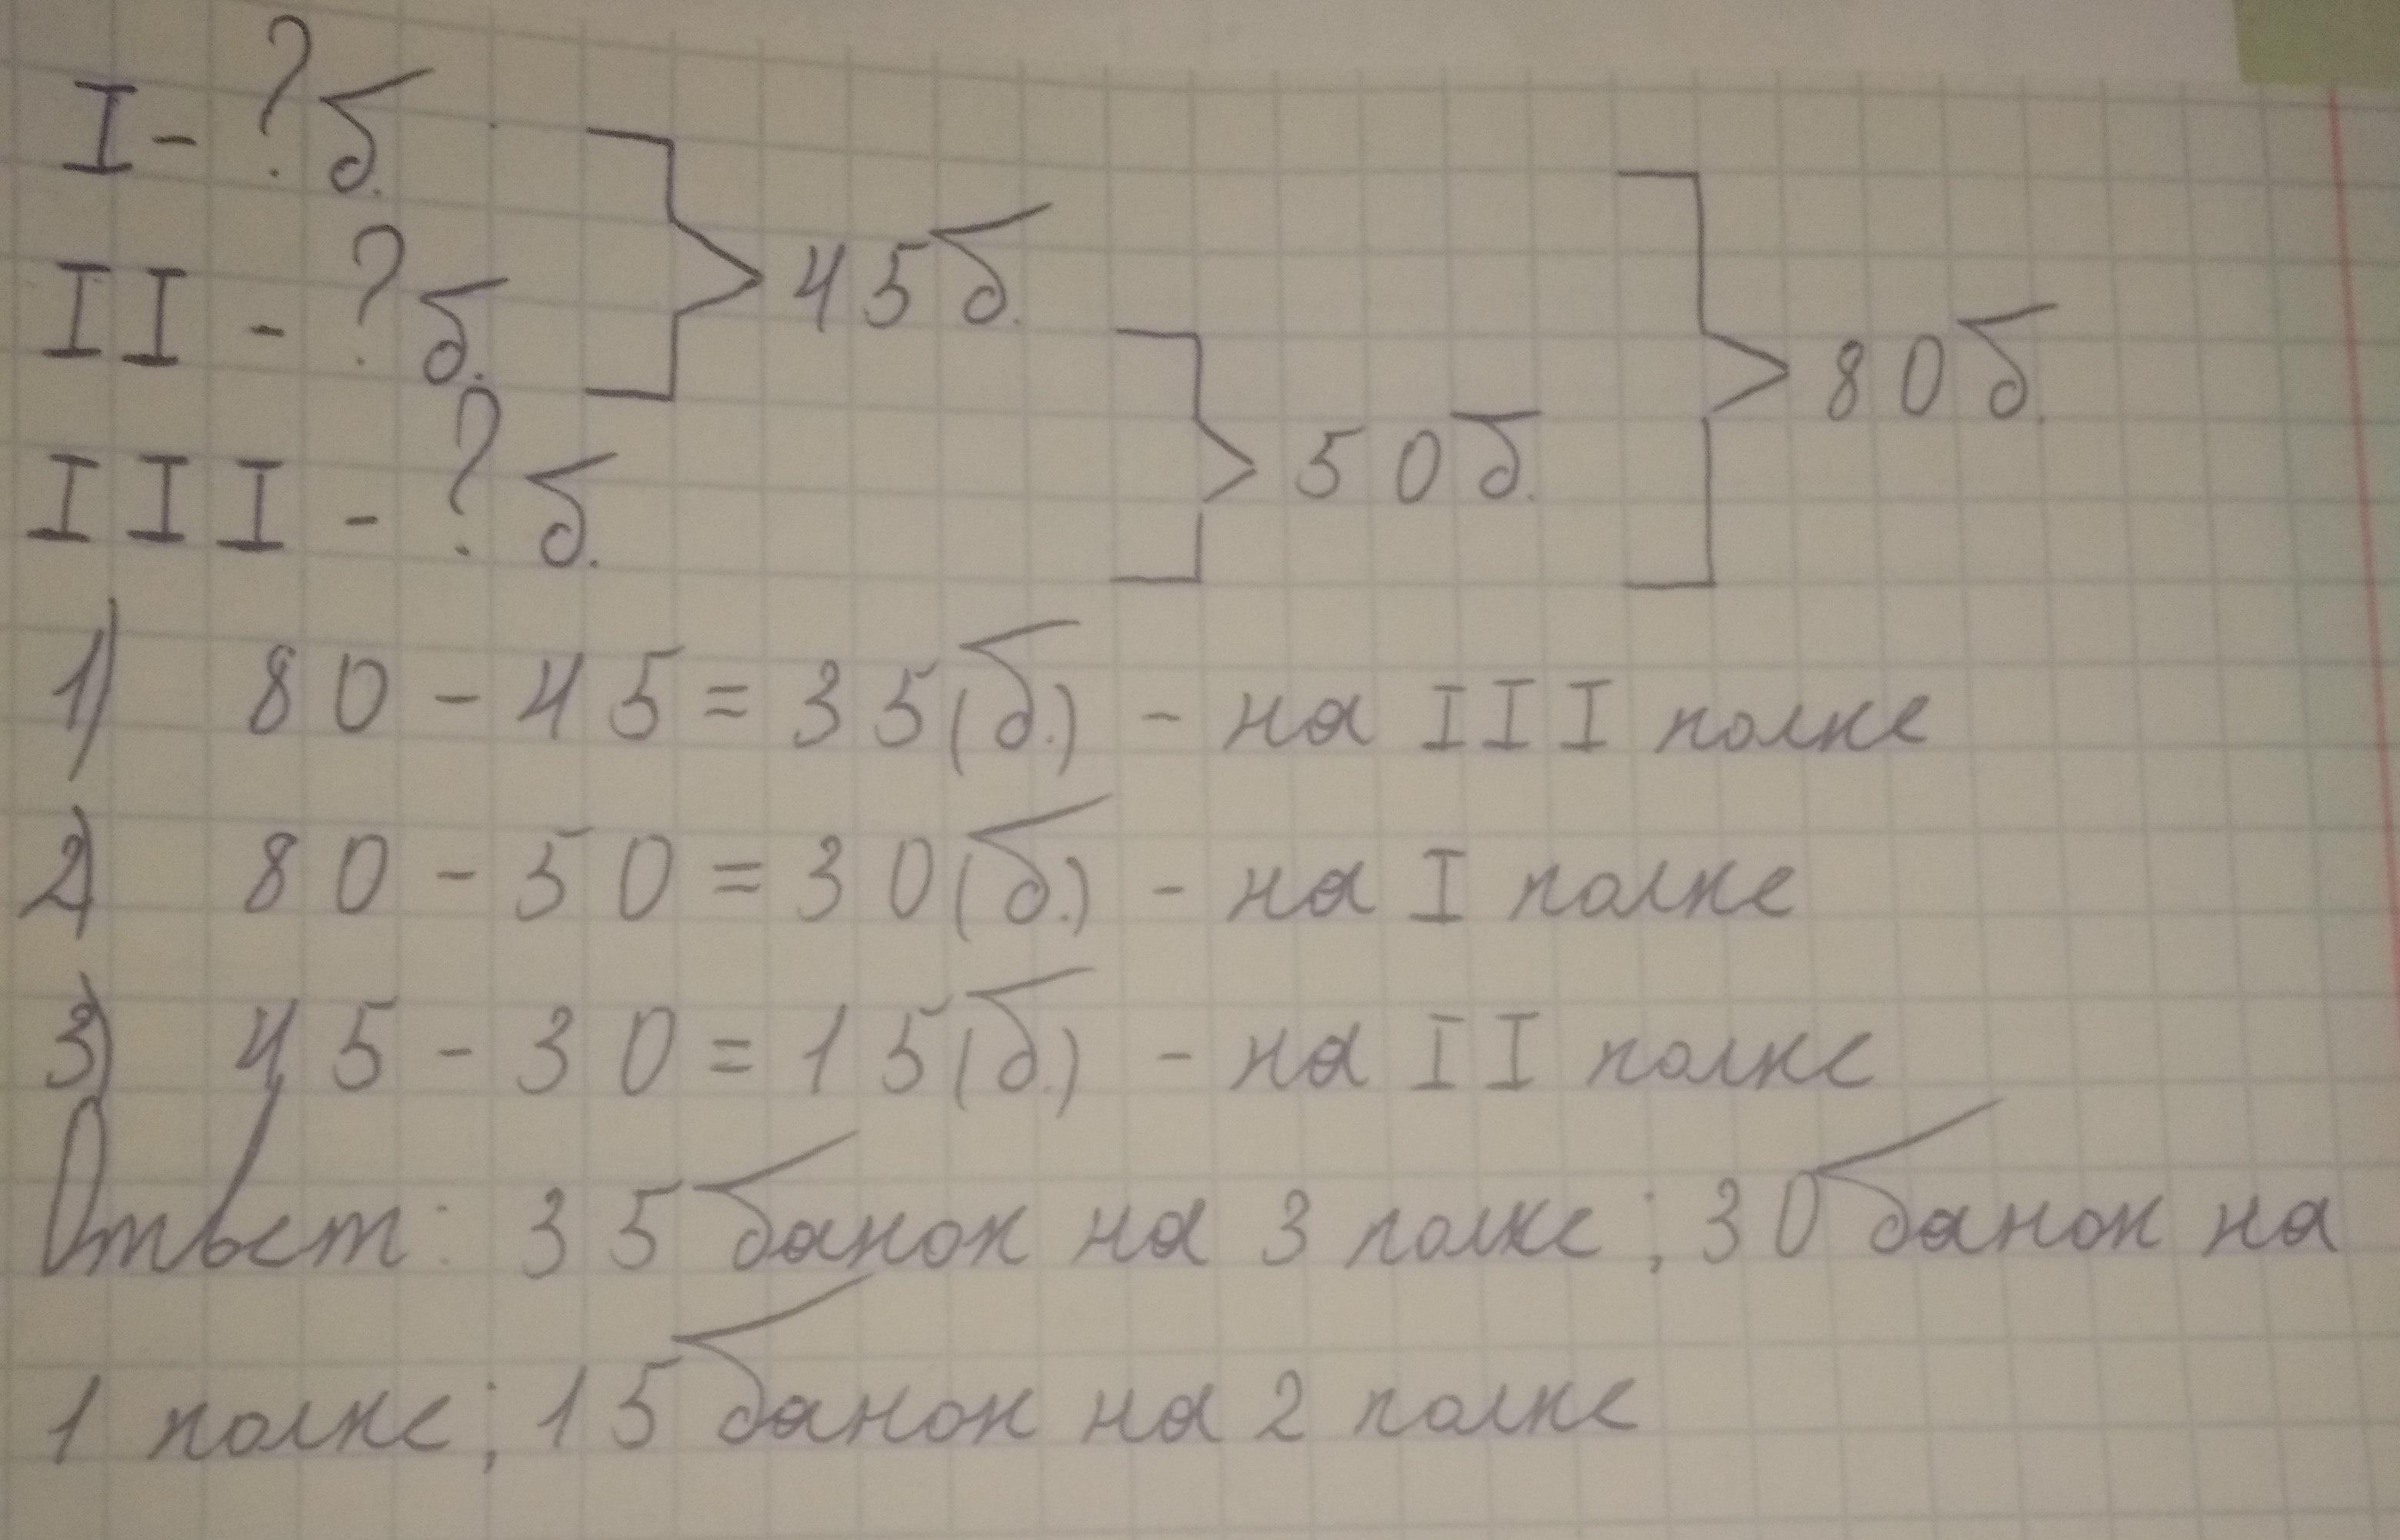 I - ? б.
45 б.
II - ? б.
80 б.
50 б.
III - ? б.
1) 80 - 45 = 35 (б.) - на III полке
2) 80 - 50 = 30 (б.) - на I полке
3) 45 - 30 = 15 (б.) - на II полке
Ответ: 35 банок на 3 полке; 30 банок на
1 полке; 15 банок на 2 полке